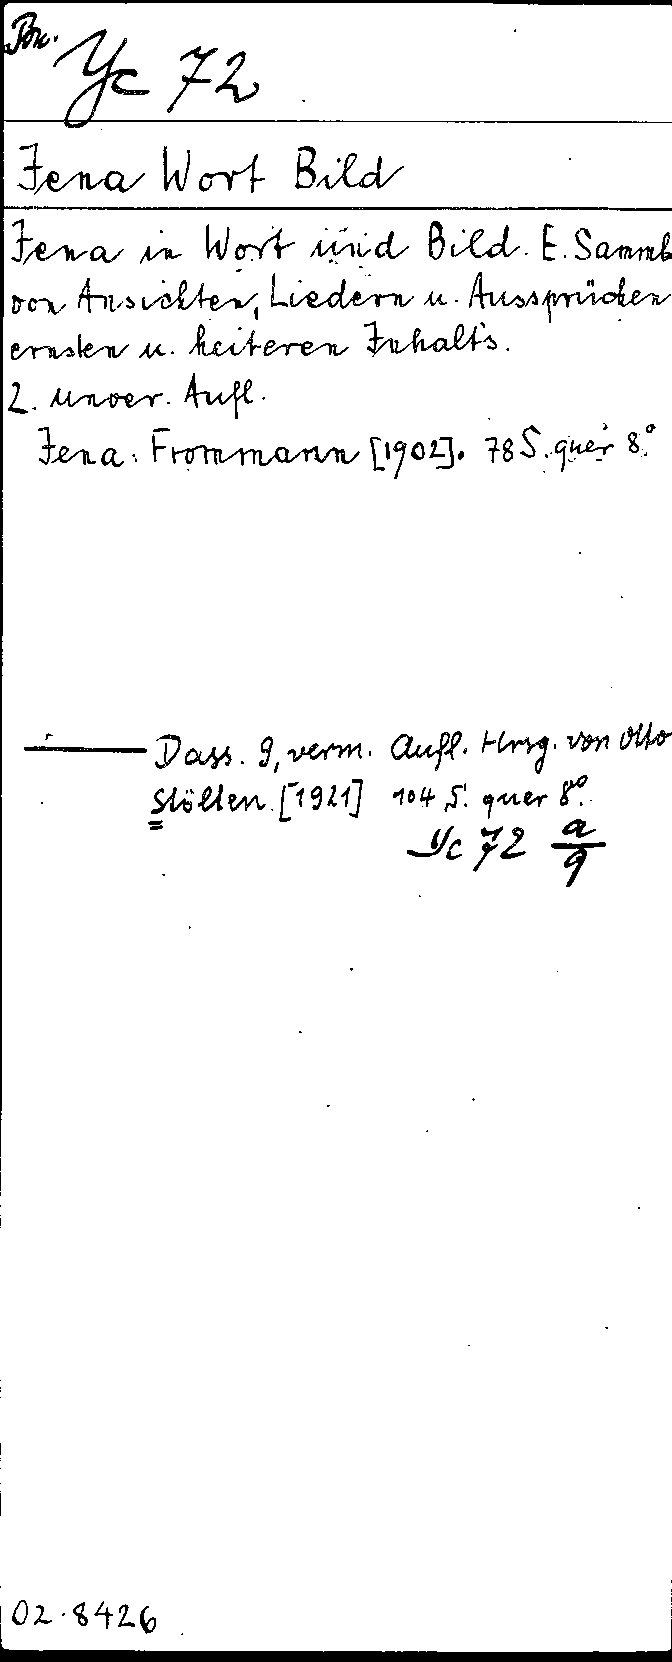 Yc 72
Jena Wort Bild
Jena in Wort und Bild. E. Samml.
von Ansichten, Liedern u. Aussprüchen
ernsten u. heiteren Inhalts.
2. unver. Aufl.
Jena: Frommann [1902]. 78 S. quer 8°
Dass. 9, verm. Aufl. Hrsg. von Otto
Stölten. [1921] 104 S. quer 8°.
Yc 72 a/9
02.8426